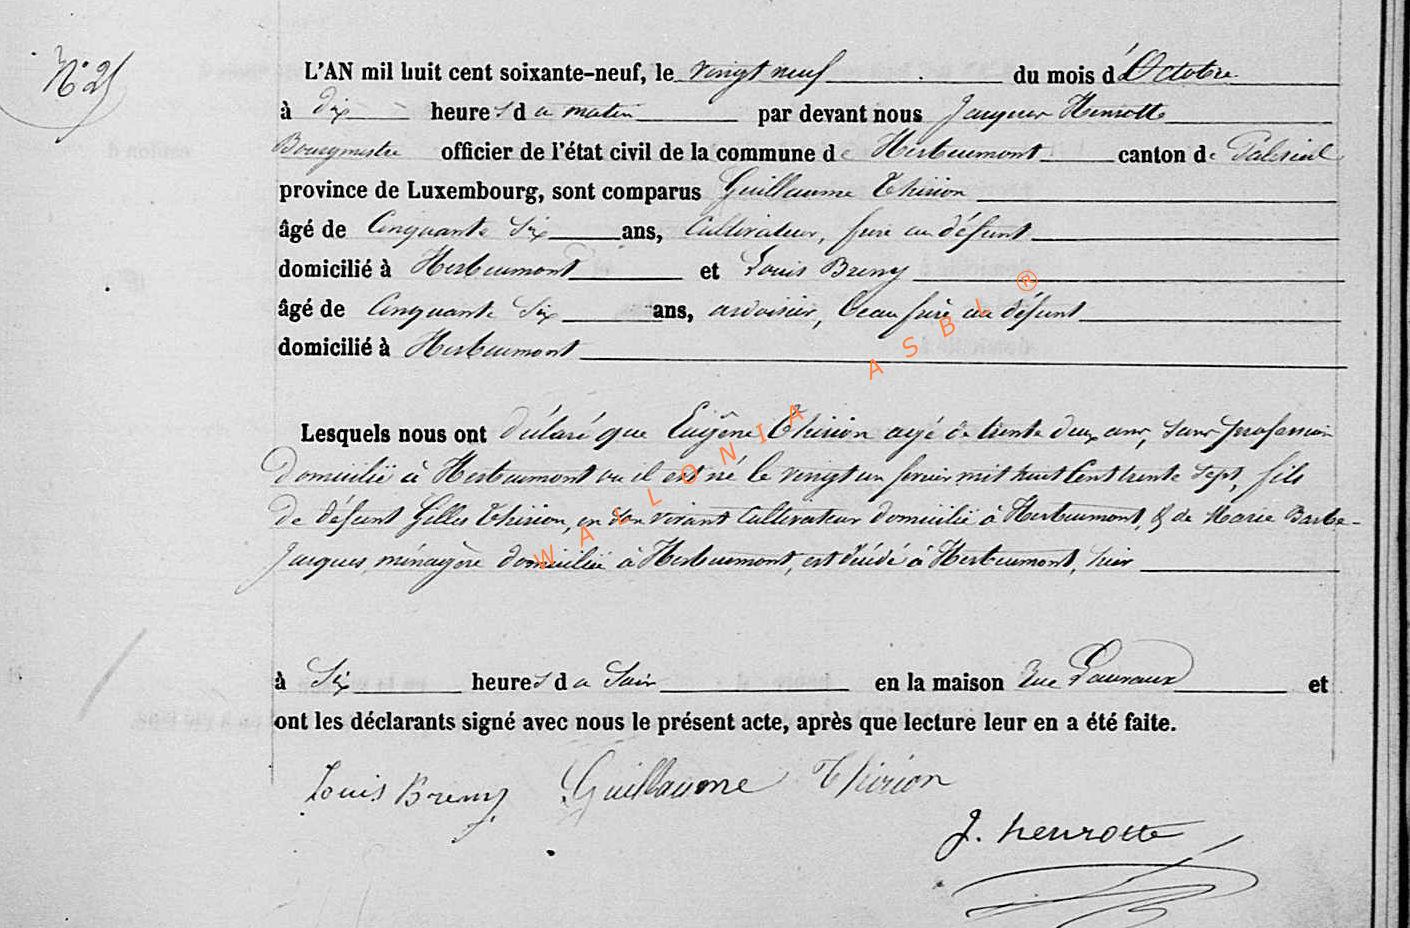 N° 25
L'AN mil huit cent soixante-neuf, le vingt neuf du mois d'Octobre
à dix heures du matin par devant nous Jacques Henrotte
Bourgmestre officier de l'état civil de la commune de Herbeumont canton de Paliseul
province de Luxembourg, sont comparus Guillaume Thirion
âgé de Cinquante Six ans, Cultivateur, frère au défunt
domicilié à Herbeumont et Louis Breny
âgé de Cinquante Six ans, ardoisier, beau frère au défunt
domicilié à Herbeumont
Lesquels nous ont déclaré que Eugêne Thirion agé de trente deux ans, sans profession
domicilié à Herbeumont ou il est né le vingt un fevrier mil huit Cent trente Sept, fils
de défunt Gilles Thirion, en son vivant Cultivateur domicilié à Herbeumont, & de Marie Barbe-
Jacques, ménagère domiciliée à Herbeumont, est décédé à Herbeumont, hier
à Six heures du Soir en la maison Rue et
ont les déclarants signé avec nous le présent acte, après que lecture leur en a été faite.
Louis Breny Guillaume Thirion
J. henrotte
WALLONIA ASBL ®